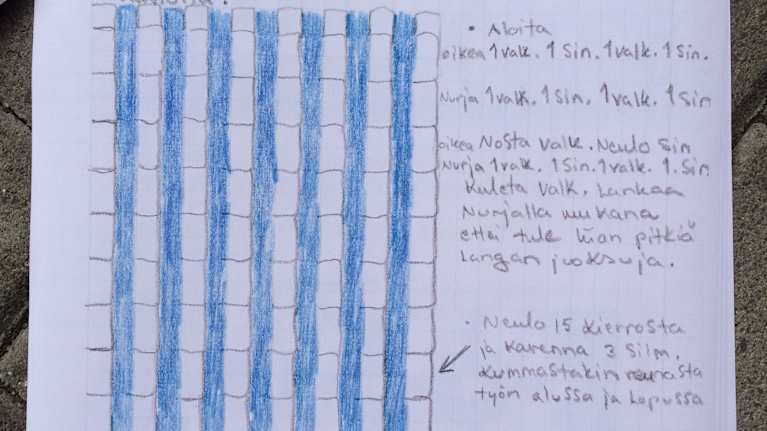 • Aloita
oikea 1 valk. 1 Sin. 1 valk. 1 Sin.
Nurja 1 valk. 1 Sin. 1 valk. 1 Sin
oikea Nosta valk. Neulo Sin
Nurja 1 valk. 1 Sin. 1 valk. 1. Sin
Kuleta valk. Lankaa
Nurjalla mukana
ettei tule liian pitkiä
Langan juoksuja.
• Neulo 15 kierrosta
ja kavenna 3 Silm.
kummastakin reunasta
työn alussa ja lopussa